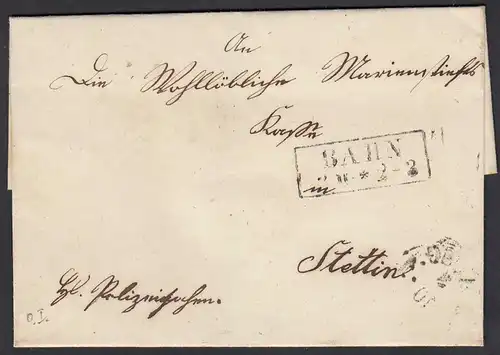 An
Die Wohllöbliche Marienstifts
Kasse
BAHN
in
Stettin.
Polizeisachen.